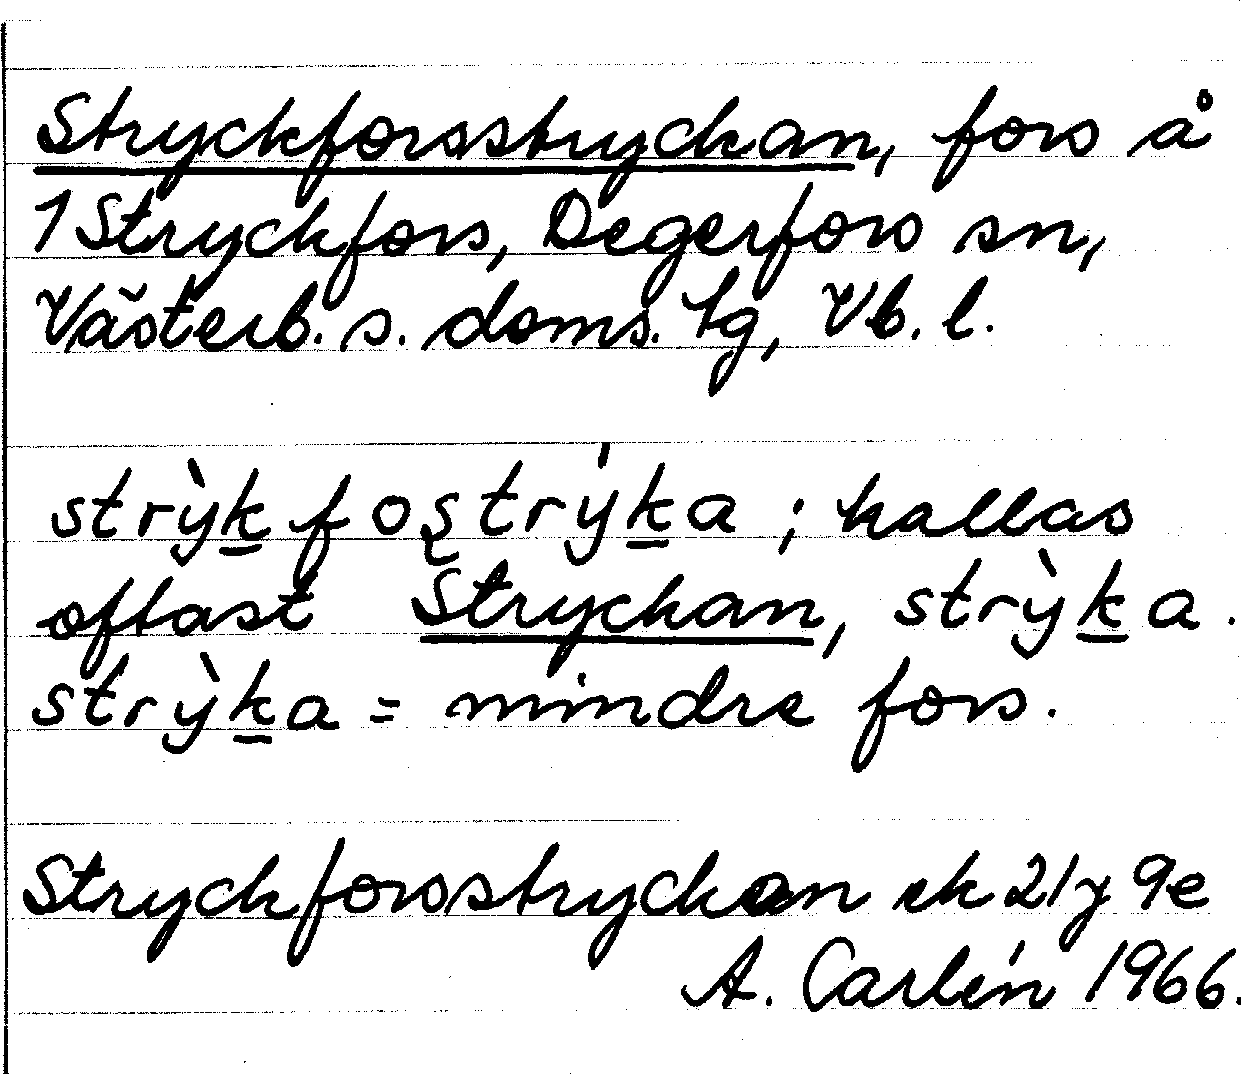 Stryckforsstryckan, fors å
1 Stryckfors, Degerfors sn,
Västerb. s. doms. tg, Vb. l.
strỳk̲ foʂtrýk̲a ; kallas
oftast Stryckan, strỳk̲a.
strỳk̲a = mindre fors.
Stryckforsstryckan ek 21 J 9e
A. Carlén 1966.